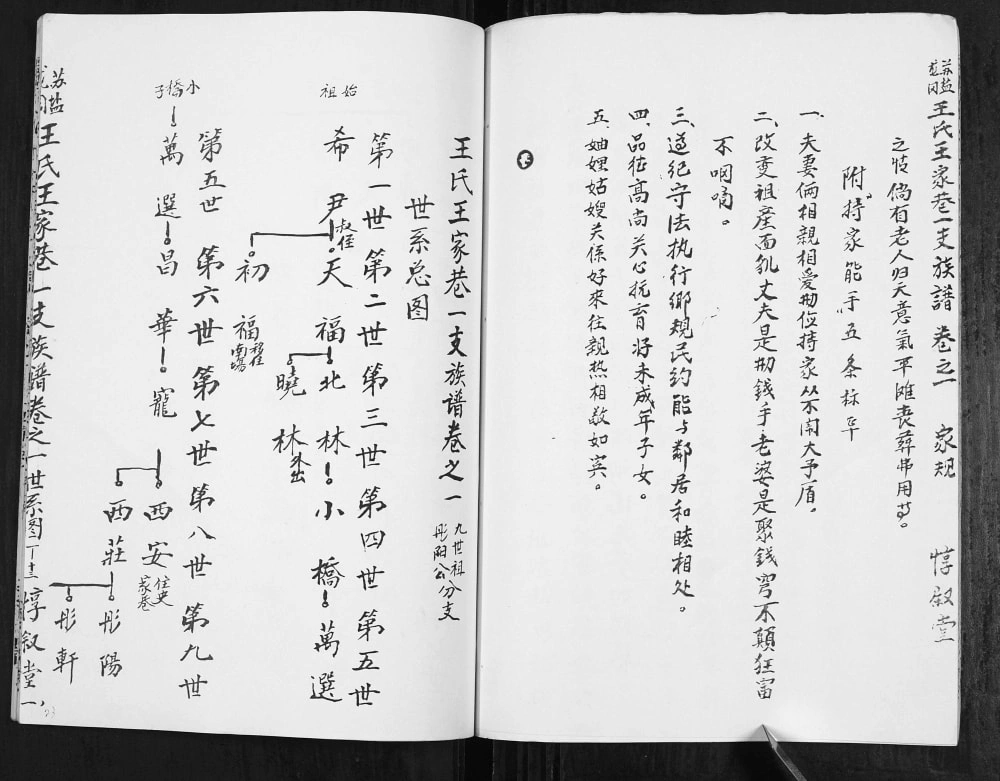 苏盐龙冈 王氏王家巷一支族譜 卷之一 家規 惇叙堂
之忮倘有老人归天意氣平摊丧葬弗用苛。
附“持家能手”五条标準
一、夫妻俩相親相爱勤俭持家从不闹大予盾。
二、改变祖産面貌丈夫是勤錢手老婆是聚錢窮不顛狂富
不啁啁。
三、遵纪守法执行鄉規民约能与鄰居和睦相处。
四、品德高尚关心抚育好未成年子女。
五、妯娌姑嫂关係好來往親热相敬如宾。
王氏王家巷一支族譜卷之一
九世祖
彤阳公分支
世系总图
第一世 第二世 第三世 第四世 第五世
始祖
希尹 天福 北林 小橋 萬選
叔侄
初福 移住南場
曉林 外出
第五世 第六世 第七世 第八世 第九世
小橋子
萬選 昌華 寵 西安 彤陽
住史家巷
西莊
彤軒
苏盐龙冈 王氏王家巷一支族譜卷之一 世系图 惇叙堂